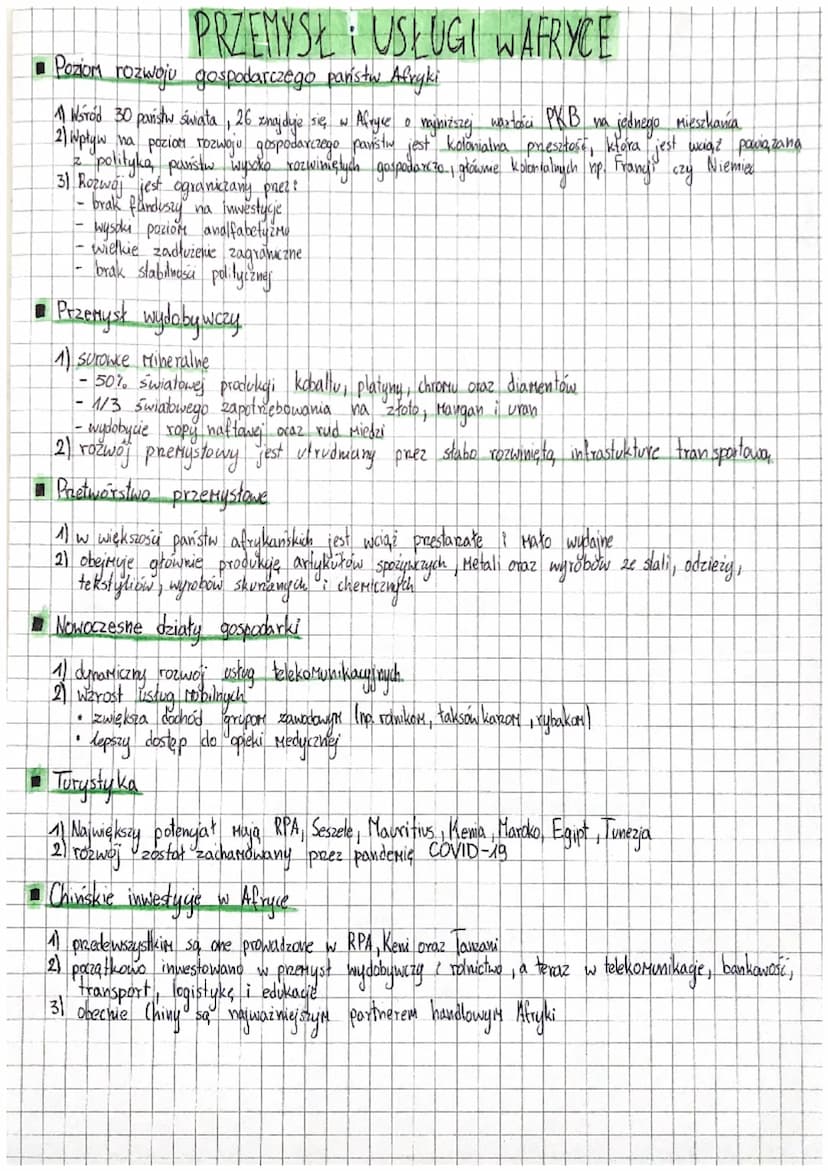 PRZEMYSŁ i USŁUGI W AFRYCE
Poziom rozwoju gospodarczego państw Afryki
1) Wśród 30 państw świata, 26 znajduje się w Afryce o najniższej wartości PKB na jednego mieszkańca
2) Wpływ na poziom rozwoju gospodarczego państw jest kolonialna przeszłość, która jest wciąż powiązana
z polityką państw wysoko rozwiniętych gospodarczo, główne kolonialnych np. Francji czy Niemiec
3) Rozwój jest ograniczany przez:
- brak funduszy na inwestycje
- wysoki poziom analfabetyzmu
- wielkie zadłużenie zagraniczne
- brak stabilności politycznej
Przemysł wydobywczy
1) surowce mineralne
- 50% światowej produkcji kobaltu, platyny, chromu oraz diamentów
- 1/3 światowego zapotrzebowania na złoto, mangan i uran
- wydobycie ropy naftowej oraz rud miedzi
2) rozwój przemysłowy jest utrudniany przez słabo rozwiniętą infrastukturę transportową
Przetwórstwo przemysłowe
1) w większości państw afrykańskich jest wciąż przestarzałe i mało wydajne
2) obejmuje głównie produkcję artykułów spożywczych, metali oraz wyrobów ze stali, odzieży,
tekstyliów, wyrobów skórzanych i chemicznych
Nowoczesne działy gospodarki
1) dynamiczny rozwój usług telekomunikacyjnych
2) wzrost usług mobilnych
• zwiększa dochód grupom zawodowym (np. rolnikom, taksówkarzom, rybakom)
• lepszy dostęp do opieki medycznej
Turystyka
1) Największy potencjał mają RPA, Seszele, Mauritius, Kenia, Maroko, Egipt, Tunezja
2) rozwój został zachamowany przez pandemię COVID-19
Chińskie inwestycje w Afryce
1) przedewszystkim są one prowadzone w RPA, Keni oraz Tanzani
2) początkowo inwestowano w przemysł wydobywczy i rolnictwo, a teraz w telekomunikacje, bankowość,
transport, logistykę i edukacje
3) obecnie Chiny są najważniejszym partnerem handlowym Afryki